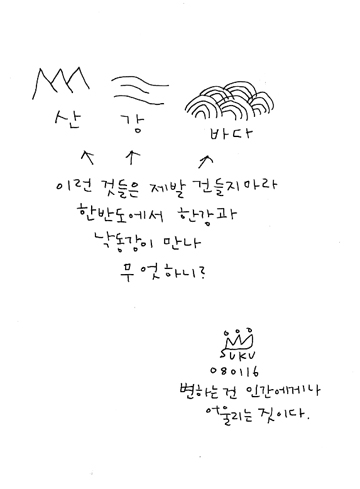 산 강 바다
이런 것들은 제발 건들지마라
한반도에서 한강과
낙동강이 만나
무엇하니?
SUKU
080116
변하는건 인간에게나
어울리는 짓이다.